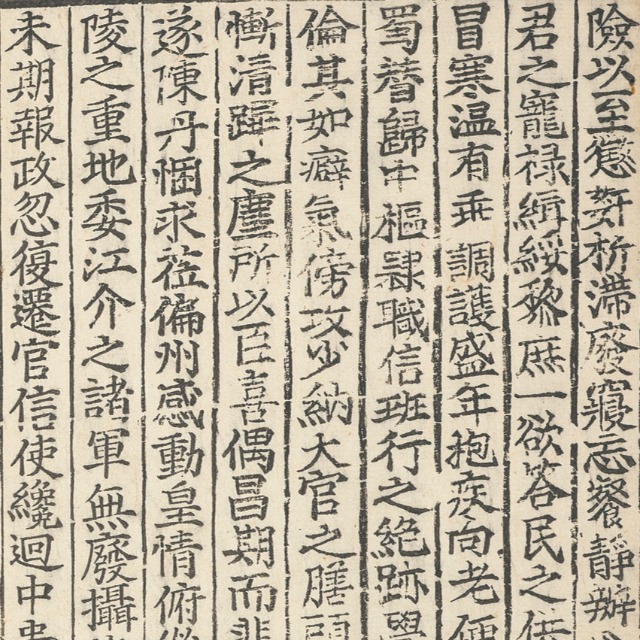 險以至愆姧析滯廢寢忘飡靜辦
君之寵祿緝綏黎庶一欲荅民之
冒寒温有乖調護盛年抱疾向老
蜀暮歸中樞隷職信班行之絶跡
倫其如癖氣傍攻少納大官之膳
慚清蹕之塵所以叵喜偶昌期而
遂陳丹悃求莅徧州感動皇情俯
陵之重地委江介之諸軍無廢攝
未期報政忽復遷官信使纔迴中